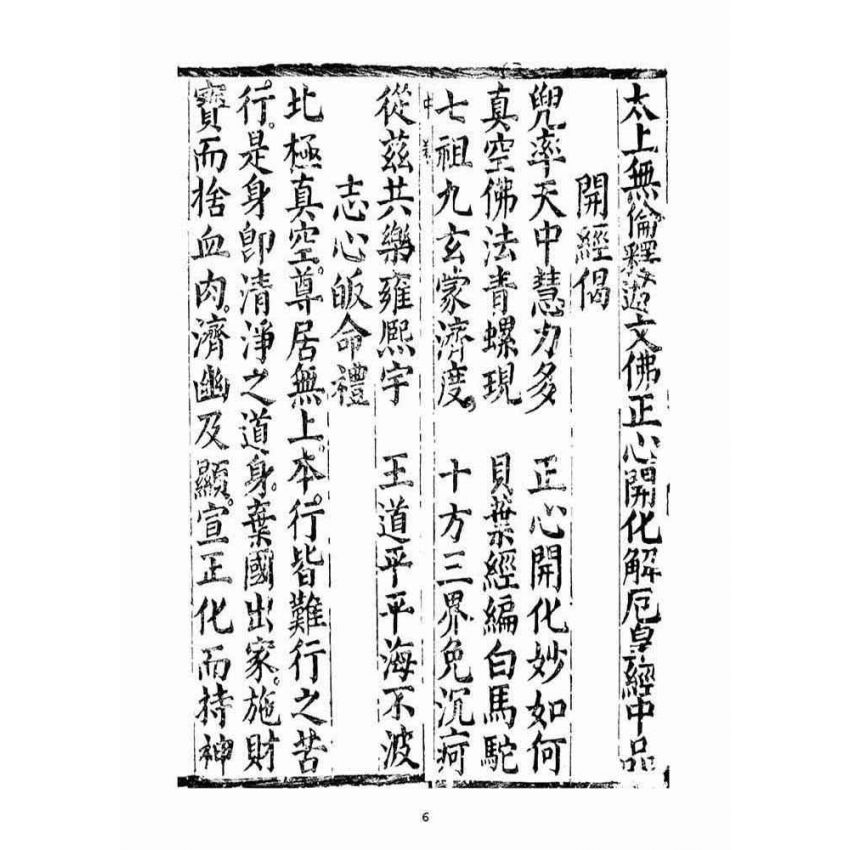 太上無倫釋迦文佛正心開化解厄真經中品
開經偈
兜率天中慧力多 正心開化妙如何
真空佛法青螺現 貝葉經編白馬駝
七祖九玄蒙濟度 十方三界免沉疴
中
從茲共樂雍熙宇 王道平平海不波
志心皈命禮
北極真空。尊居無上。本行皆難行之苦
行。是身卽清淨之道身。棄國出家。施財
寶而捨血肉。濟幽及顯。宣正化而持神
6